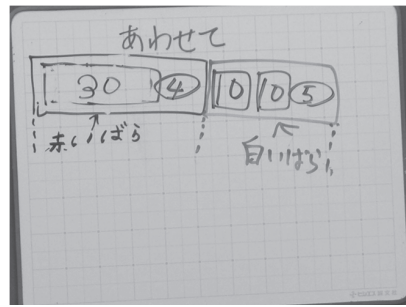 あわせて
30 4 10 10 5
赤いばら 白いばら